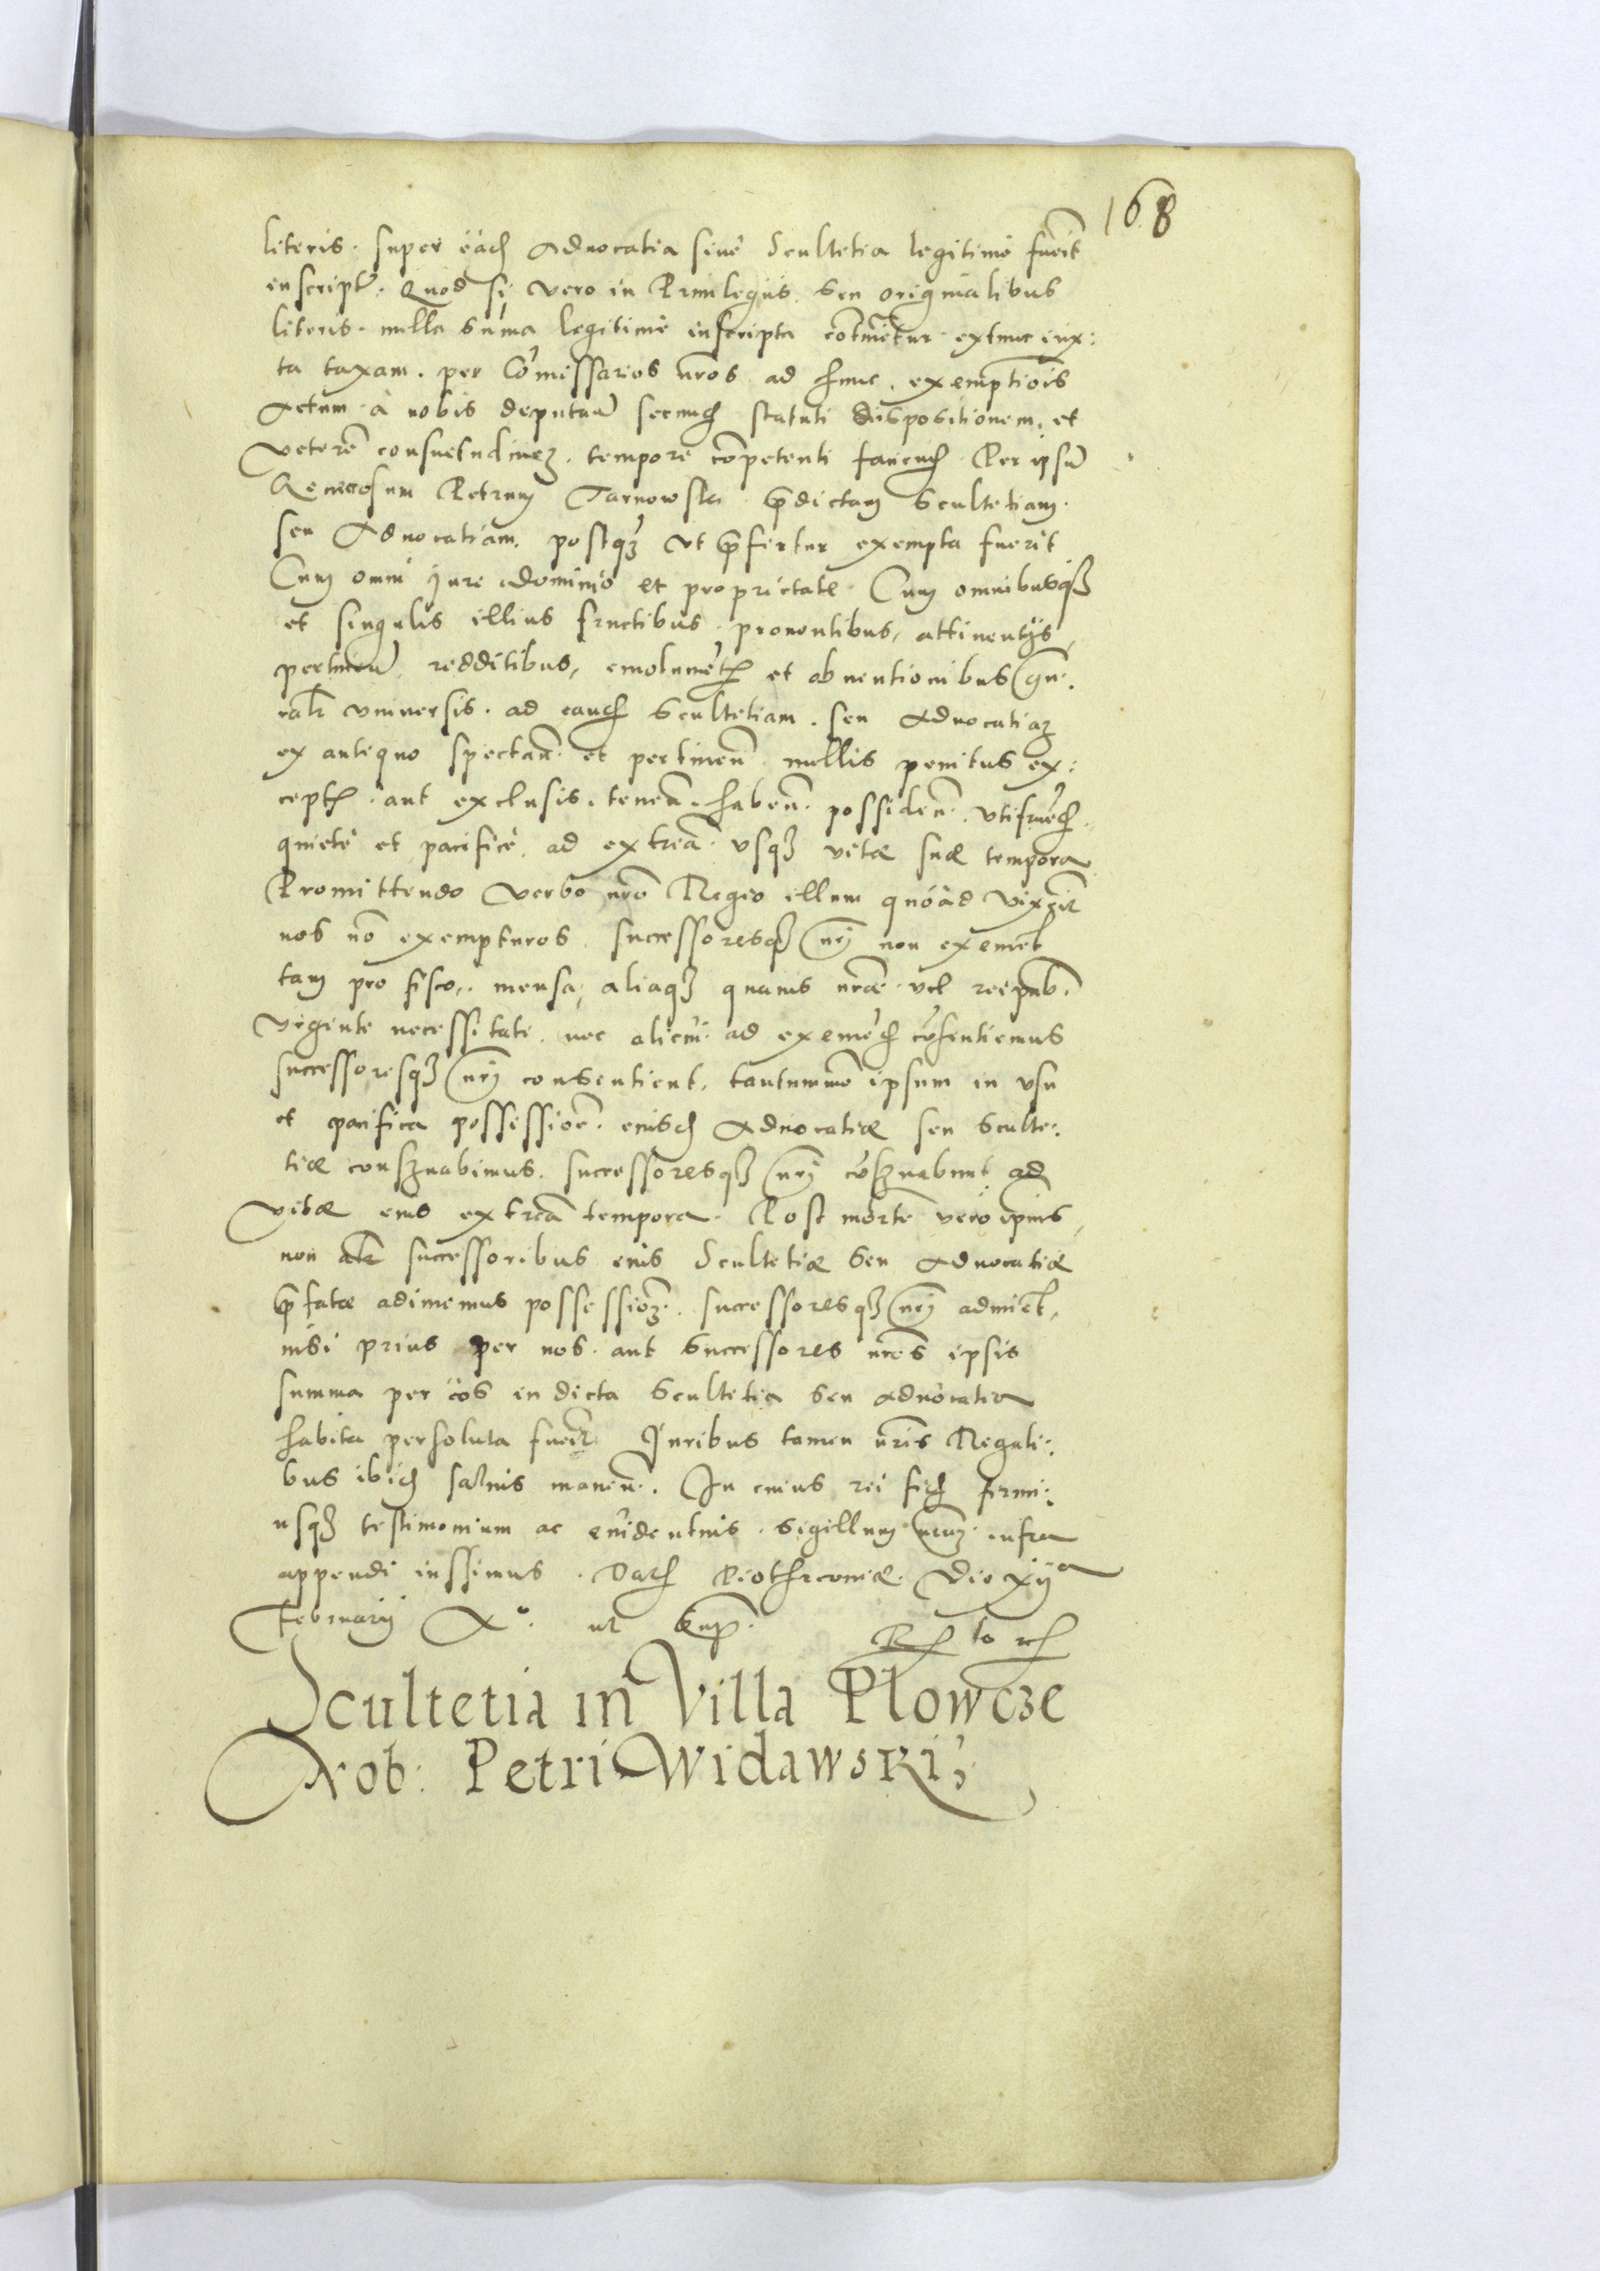 168
literis. super eadē Aduocatia siue Scultetia legitime fuerīt
inscripte. Quod si vero in Priuilegijs seu originalibus
literis. nulla sūma legitime inscripta cōtinētur. extunc iux:
ta taxam. per Cōmissarios nr̄os ad hunc. exemptiōis
Actum. à nobis deputan̄ secund. statuti dispositionem. et
veterē consuetudinez. tempore cōpetenti faciend. Per ipsū
Generosum Petrum Tarnowski p̄dictam Scultetiam.
seu Aduocatiam. postqz vt p̄fertur exempta fuerit
Cum omni jure dominio et proprietate. Cum omnibusqz
et singulis illius fructibus. prouentibus, attinentijs,
pertinen̄ redditibus, emolumēt et obuentionibus gn̄e.
ralr vniuersis. ad eand Scultetiam. seu Aduocatiaz
ex antiquo spectan̄. et pertinen̄. nullis penitus ex:
cept. aut exclusis. tenen̄. haben̄. possiden̄. vtifruēd.
quietè et pacificè. ad extrēa. vsqz vitæ suæ tempora
Promittendo verbo nr̄o Regio illum quòad vixerit
nos nō exempturos. successoresqz nr̄j non eximent
tam pro fisco,. mensa, aliaqz quauis nr̄æ. vel reipub.
vrgente necessitate. nec alicui. ad eximēd cōsentiemus
successoresqz nr̄j consentient, tantummō ipsum in vsu
et pacifica possessiōe. eiusd Aduocatiæ seu Sculte:
tiæ conseruabimus. successoresqz nr̄j cōseruabunt ad
vitæ eius extrēa tempora. Post mortē vero ipius,
non alr successoribus eius Scultetiæ seu Aduocatiæ
p̄fatæ adimemus possessioēz. successoresqz nr̄j adiment,
nisi prius per nos. aut successores nr̄os ipsis
summa per eos in dicta Scultetia seu Aduocatia
habita persoluta fuerit. Juribus tamen nr̄is Regali:
bus ibid saluis manen̄. In cuius rei fid firmi:
usqz testimonium ac euidentius. sigillum nr̄um. infra
appendi iussimus. Dat Piothrcouiæ. Die xija
Februarij A°. ut sup.
Scultetia in Villa Plowcze
Nob: Petri Widawski;